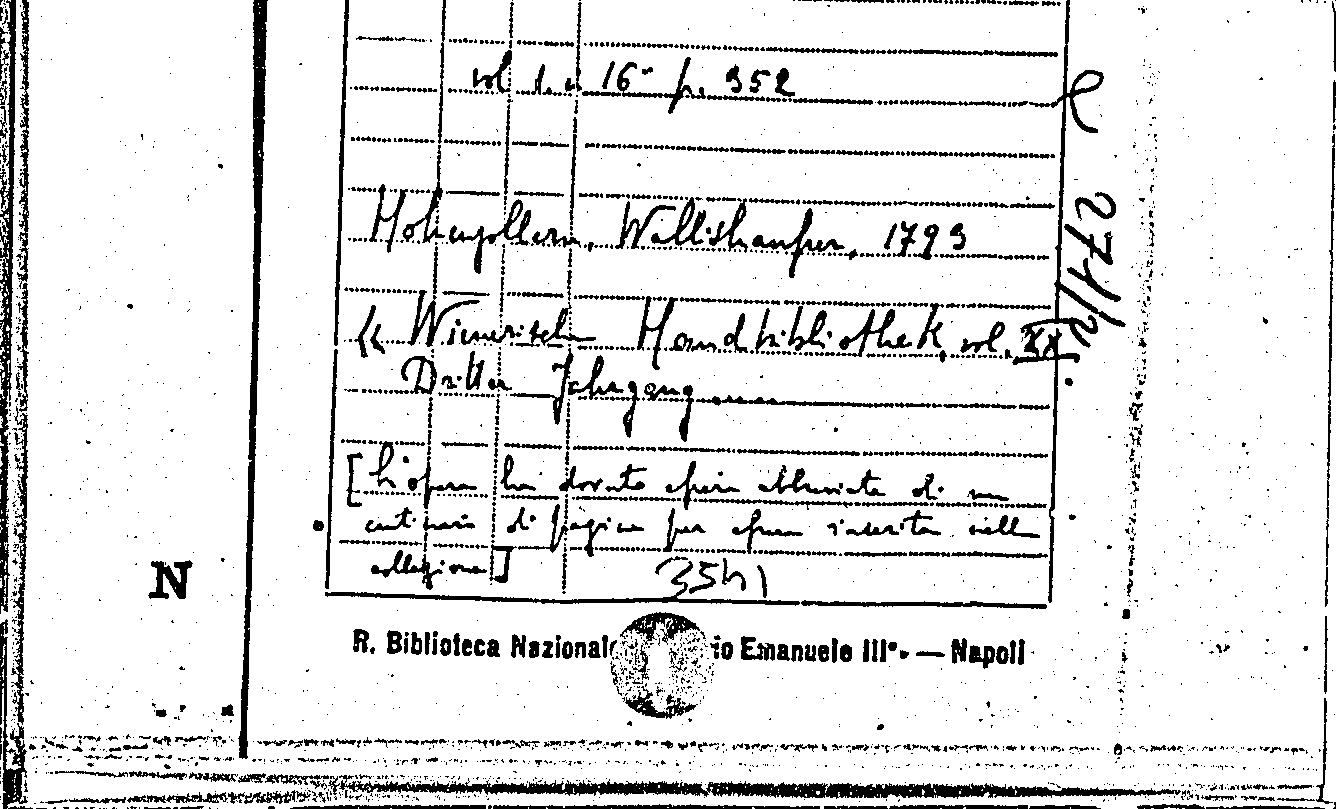 vol 1. in 16° p. 352
Hohenzollern, Wallishausser, 1793
« Wienerische Handbibliothek, vol. XX,
Dritter Jahrgang
[L'opera ha dovuto essere di un
centinaio di pagine per essere inserita nella
collezione]
3541
271/2
N
R. Biblioteca Nazionale io Emanuele III°. — Napoli